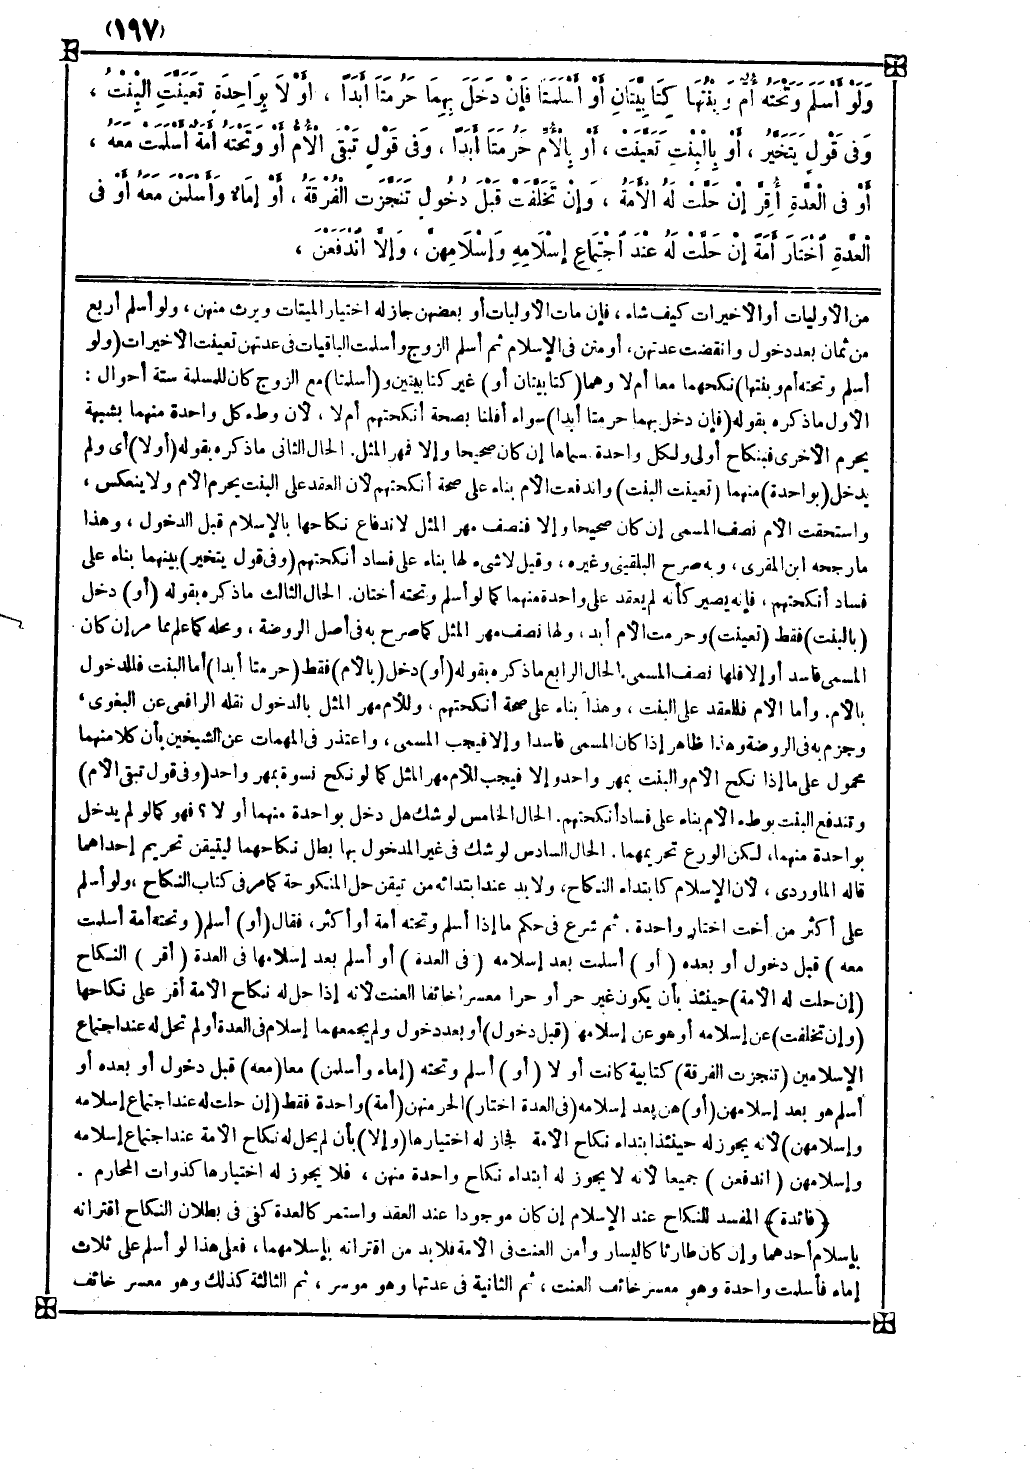 (١٩٧)
وَلَوْ أَسْلَمَ وَتَحْتَهُ أُمٌّ وَبِنْتُهَا كِتَابِيَّتَانِ أَوْ أَسْلَمَتَا فَإِنْ دَخَلَ بِهِمَا حَرُمَتَا أَبَدًا ، أَوْ لَا بِوَاحِدَةٍ تَعَيَّنَتِ الْبِنْتُ ،
وَفِى قَوْلٍ يَتَخَيَّرُ ، أَوْ بِالْبِنْتِ تَعَيَّنَتْ ، أَوْ بِالْأُمِّ حَرُمَتَا أَبَدًا ، وَفِى قَوْلٍ تَبْقَى الْأُمُّ أَوْ وَتَحْتَهُ أَمَةٌ أَسْلَمَتْ مَعَهُ ،
أَوْ فِى الْعِدَّةِ أُقِرَّ إِنْ حَلَّتْ لَهُ الْأَمَةُ ، وَإِنْ تَخَلَّفَتْ قَبْلَ دُخُولٍ تَنَجَّزَتِ الْفُرْقَةُ ، أَوْ إِمَاءٌ وَأَسْلَمْنَ مَعَهُ أَوْ فِى
الْعِدَّةِ اخْتَارَ أَمَةً إِنْ حَلَّتْ لَهُ عِنْدَ اجْتِمَاعِ إِسْلَامِهِ وَإِسْلَامِهِنَّ ، وَإِلَّا انْدَفَعْنَ ،
من الأوليات أو الأخيرات كيف شاء ، فإن مات الأوليات أو بعضهن جاز له اختيار الميتات ويرث منهن ، ولو أسلم أربع
من ثمان بعد دخول وانقضت عدتهن ، أو متن فى الإسلام ثم أسلم الزوج وأسلمت الباقيات فى عدتهن تعينت الأخيرات (ولو
أسلم وتحته أم وبنتها) نكحهما معا أم لا وهما (كتابيتان أو) غير كتابيتين و(أسلمتا) مع الزوج كان للمسلمة ستة أحوال :
الأول ما ذكره بقوله (فإن دخل بهما حرمتا أبدا) سواء أقلنا بصحة أنكحتهم أم لا ، لأن وطء كل واحدة منهما بشبهة
يحرم الأخرى فبنكاح أولى ولكل واحدة مسماها إن كان صحيحا وإلا فمهر المثل. الحال الثانى ما ذكره بقوله (أو لا) أى ولم
يدخل (بواحدة) منهما (تعينت البنت) واندفعت الأم بناء على صحة أنكحتهم لأن العقد على البنت يحرم الأم ولا ينعكس ،
واستحقت الأم نصف المسمى إن كان صحيحا وإلا فنصف مهر المثل لاندفاع نكاحها بالإسلام قبل الدخول ، وهذا
ما رجحه ابن المقرى ، وبه صرح البلقينى وغيره ، وقيل لا شىء لها بناء على فساد أنكحتهم (وفى قول يتخير) بينهما بناء على
فساد أنكحتهم ، فإنه يصير كأنه لم يعقد على واحدة منهما كما لو أسلم وتحته أختان. الحال الثالث ما ذكره بقوله (أو) دخل
(بالبنت) فقط (تعينت) وحرمت الأم أبد ، ولها نصف مهر المثل كما صرح به فى أصل الروضة ، ومحله كما علم مما مر إن كان
المسمى فاسدا وإلا فلها نصف المسمى. الحال الرابع ما ذكره بقوله (أو) دخل (بالأم) فقط (حرمتا أبدا) أما البنت فللدخول
بالأم. وأما الأم فللعقد على البنت ، وهذا بناء على صحة أنكحتهم ، وللأم مهر المثل بالدخول نقله الرافعى عن البغوى ،
وجزم به فى الروضة وهذا ظاهر إذا كان المسمى فاسدا وإلا فيجب المسمى ، واعتذر فى المهمات عن الشيخين بأن كلامنهما
محمول على ما إذا نكح الأم والبنت بمهر واحد وإلا فيجب للأم مهر المثل كما لو نكح نسوة بمهر واحد (وفى قول تبقى الأم)
وتندفع البنت بوطء الأم بناء على فساد أنكحتهم. الحال الخامس لو شك هل دخل بواحدة منهما أو لا ؟ فهو كما لو لم يدخل
بواحدة منهما، لكن الورع تحريمهما . الحال السادس لو شك فى غير المدخول بها بطل نكاحهما ليتيقن تحريم إحداهما
قاله الماوردى ، لأن الإسلام كابتداء النكاح، ولا بد عند ابتدائه من تيقن حل المنكوحة كما مر فى كتاب النكاح ،ولو أسلم
على أكثر من أخت اختار واحدة . ثم شرع فى حكم ما إذا أسلم وتحته أمة أو أكثر، فقال (أو) أسلم ( وتحته أمة أسلمت
معه ) قبل دخول أو بعده ( أو ) أسلمت بعد إسلامه ( فى العدة ) أو أسلم بعد إسلامها فى العدة ( أقر ) النكاح
(إن حلت له الأمة) حينئذ بأن يكون غير حر أو حرا معسرا خائفا العنت لأنه إذا حل له نكاح الأمة أقر على نكاحها
(وإن تخلفت) عن إسلامه أو هو عن إسلامها (قبل دخول) أو بعد دخول ولم يجمعهما إسلام فى العدة أو لم تحل له عند اجتماع
الإسلامين (تنجزت الفرقة) كتابية كانت أو لا ( أو ) أسلم وتحته (إماء وأسلمن) معا (معه) قبل دخول أو بعده أو
أسلم هو بعد إسلامهن (أو) هن بعد إسلامه (فى العدة اختار) الحر منهن (أمة) واحدة فقط (إن حلت له عند اجتماع إسلامه
وإسلامهن) لأنه يجوز له حينئذ ابتداء نكاح الأمة فجاز له اختيارها (وإلا) بأن لم يحل له نكاح الأمة عند اجتماع إسلامه
وإسلامهن ( اندفعن ) جميعا لأنه لا يجوز له ابتداء نكاح واحدة منهن ، فلا يجوز له اختيارها كذوات المحارم .
﴿فائدة﴾ المفسد للنكاح عند الإسلام إن كان موجودا عند العقد واستمر كالعدة كفى فى بطلان النكاح اقترانه
بإسلام أحدهما وإن كان طارئا كاليسار وأمن العنت فى الأمة فلابد من اقترانه بإسلامهما ، فعلى هذا لو أسلم على ثلاث
إماء فأسلمت واحدة وهو معسر خائف العنت ، ثم الثانية فى عدتها وهو موسر ، ثم الثالثة كذلك وهو معسر خائف